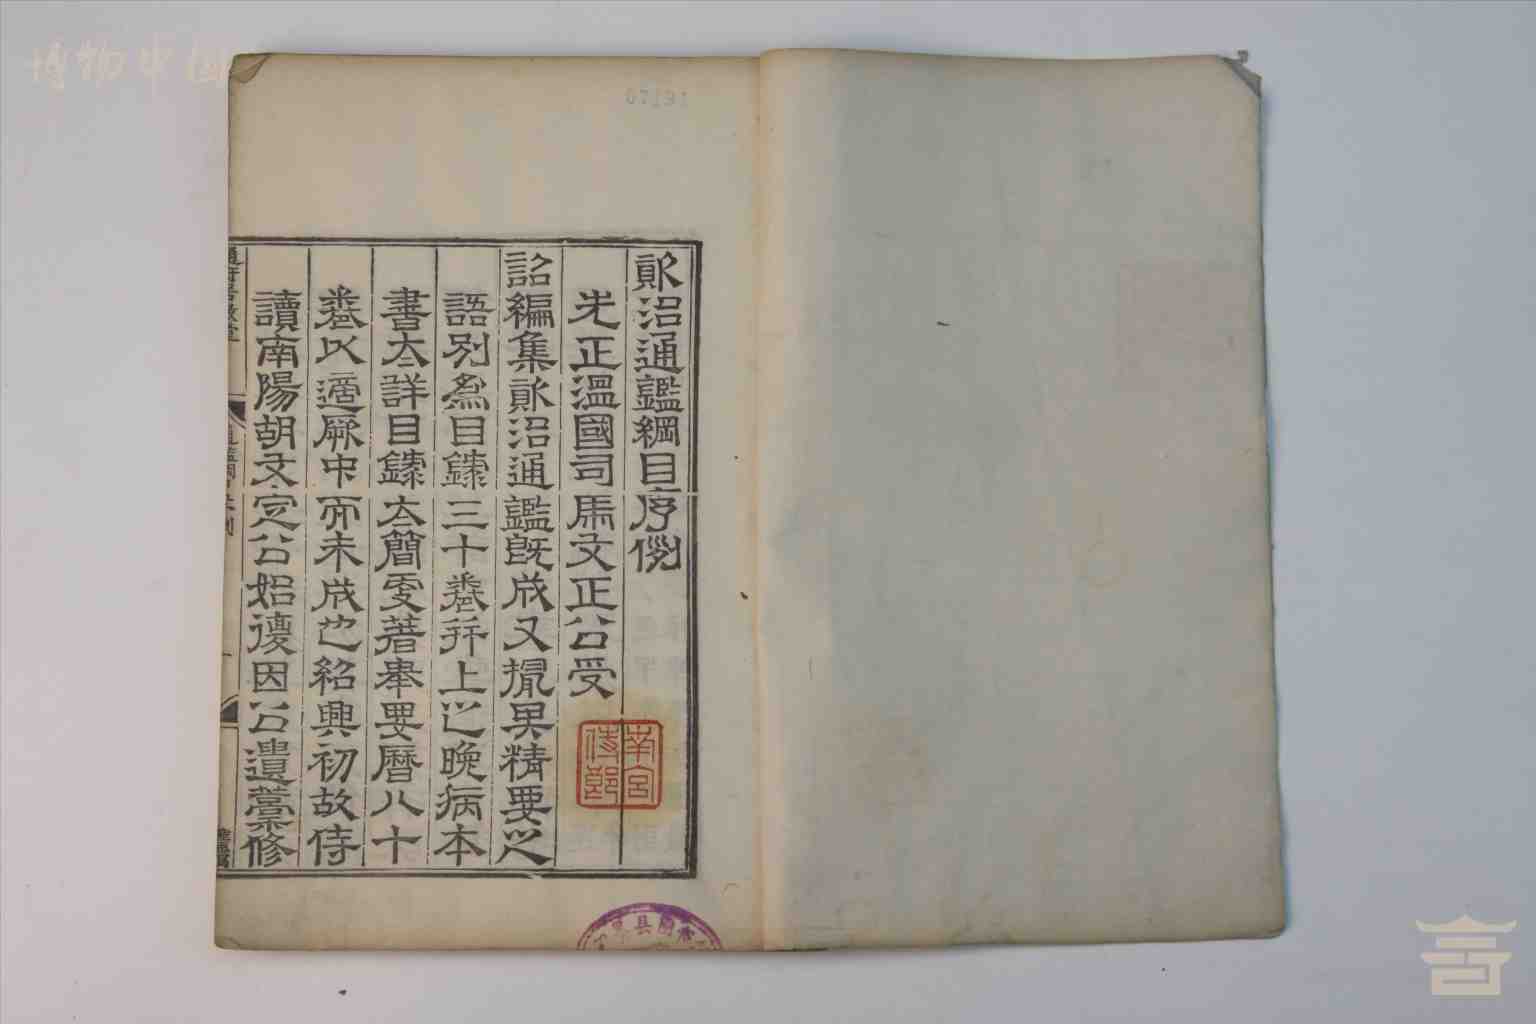 博物中国
07191
資治通鑑綱目序例
先正溫國司馬文正公受
詔編集資治通鑑既成又撮其精要之
語別爲目錄三十卷并上之晚病本
書太詳目錄太簡更著舉要曆八十
卷以適厥中而未成也紹興初故侍
讀南陽胡文定公始復因公遺藁修
南宮
侍郎
縣圖